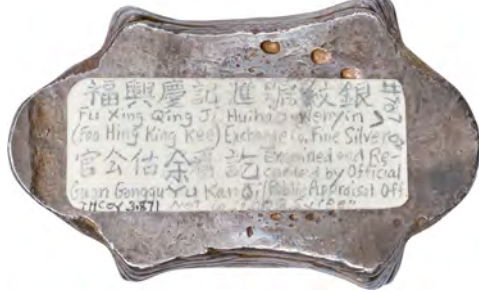 福興慶記滙號紋銀 #707
Fu Xing Qing Ji Huihao Wenyin
(Foo Hing King Kee) Exchange co, Fine Silver
官公估余看訖 Examined and Re-
corded by Official
Guan Gonggu Yu Kan Qi (Public Appraisal Off
THCOY 3.871 Not